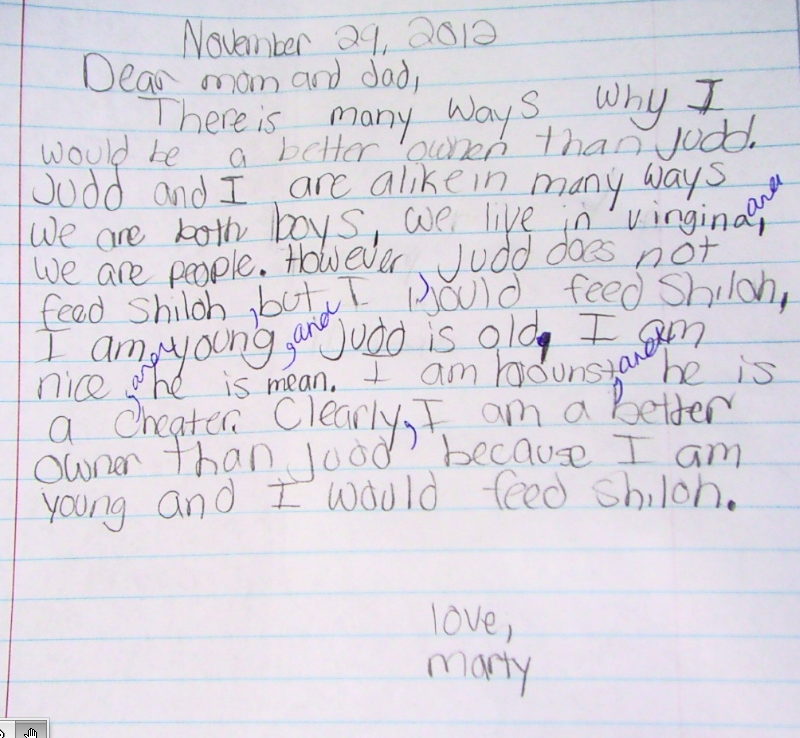 November 29, 2012
Dear mom and dad,
There is many ways why I
would be a better owner than Judd.
Judd and I are alike in many ways
we are both boys, we live in virgina, and
we are people. However, Judd does not
feed Shiloh, but I would feed Shiloh,
I am young, and Judd is old, I am
nice, and he is mean. I am hounst, and he is
a cheater. Clearly, I am a better
owner than Judd, because I am
young and I would feed Shiloh.
love,
marty